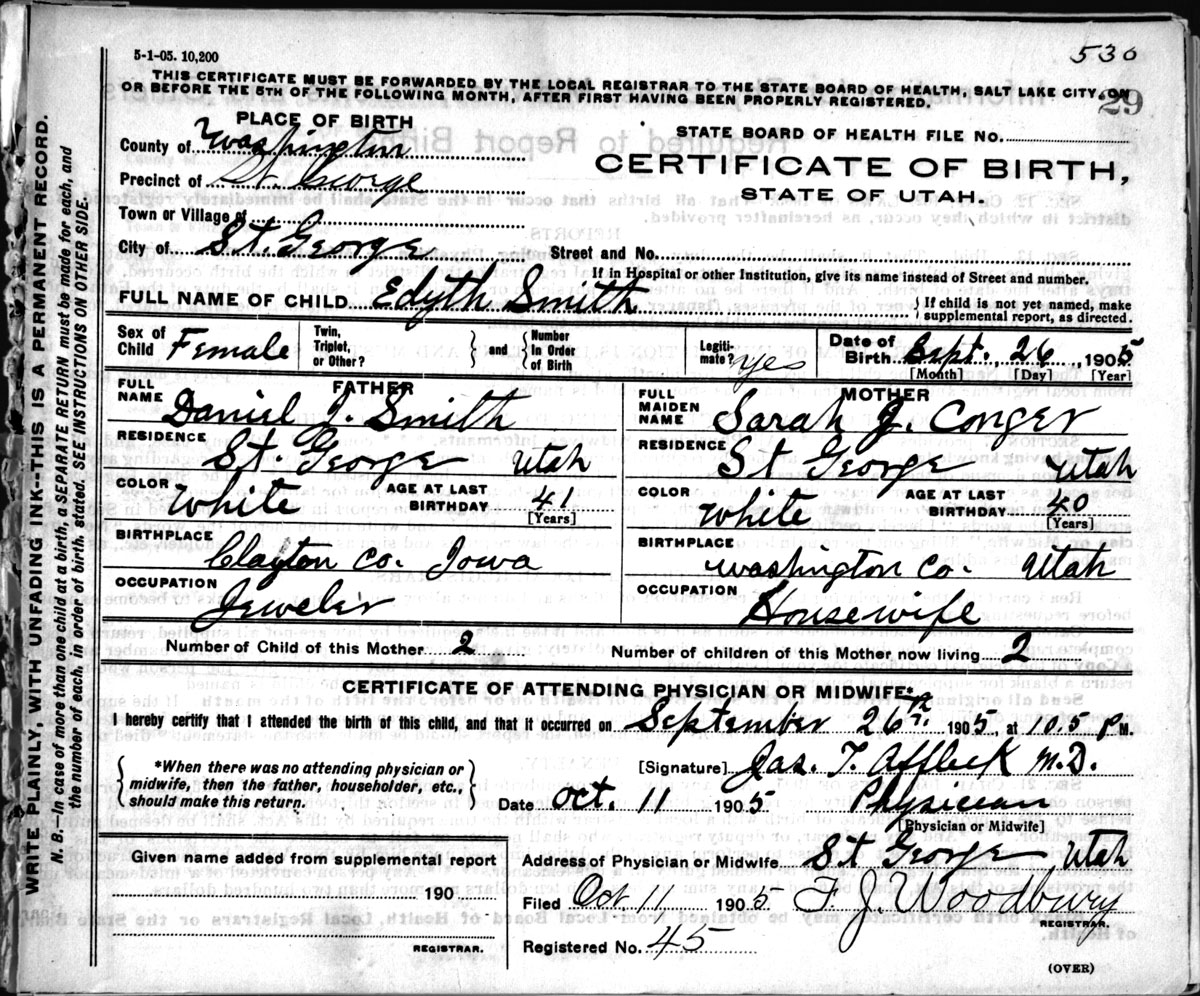 5-1-05. 10,200
530
THIS CERTIFICATE MUST BE FORWARDED BY THE LOCAL REGISTRAR TO THE STATE BOARD OF HEALTH, SALT LAKE CITY, ON
OR BEFORE THE 5TH OF THE FOLLOWING MONTH, AFTER FIRST HAVING BEEN PROPERLY REGISTERED.
29
PLACE OF BIRTH
STATE BOARD OF HEALTH FILE No.
County of Washington
CERTIFICATE OF BIRTH,
Precinct of St. George
STATE OF UTAH.
Town or Village of
City of St. George Street and No.
If in Hospital or other Institution, give its name instead of Street and number.
FULL NAME OF CHILD Edyth Smith
If child is not yet named, make
supplemental report, as directed.
Sex of Child Female
Twin, Triplet, or Other?
and Number in Order of Birth
Legitimate? yes
Date of Birth Sept. 26, 1905
[Month] [Day] [Year]
FATHER
FULL NAME Daniel J. Smith
RESIDENCE St George Utah
COLOR White AGE AT LAST BIRTHDAY 41
[Years]
BIRTHPLACE Clayton Co. Iowa
OCCUPATION Jeweler
MOTHER
FULL MAIDEN NAME Sarah J. Conger
RESIDENCE St George Utah
COLOR White AGE AT LAST BIRTHDAY 40
[Years]
BIRTHPLACE Washington Co. Utah
OCCUPATION Housewife
Number of Child of this Mother 2 Number of children of this Mother now living 2
CERTIFICATE OF ATTENDING PHYSICIAN OR MIDWIFE*
I hereby certify that I attended the birth of this child, and that it occurred on September 26th 1905, at 10.5 P M.
*When there was no attending physician or
midwife, then the father, householder, etc.,
should make this return.
[Signature] Jas. T. Affleck M.D.
Date Oct. 11 1905 Physician
[Physician or Midwife]
Given name added from supplemental report
190
REGISTRAR.
Address of Physician or Midwife St George Utah
Filed Oct 11 1905 F. J. Woodbury
REGISTRAR.
Registered No. 45
(OVER)
WRITE PLAINLY, WITH UNFADING INK--THIS IS A PERMANENT RECORD.
N. B. In case of more than one child at a birth, a SEPARATE RETURN must be made for each, and
the number of each, in order of birth, stated. SEE INSTRUCTIONS ON OTHER SIDE.